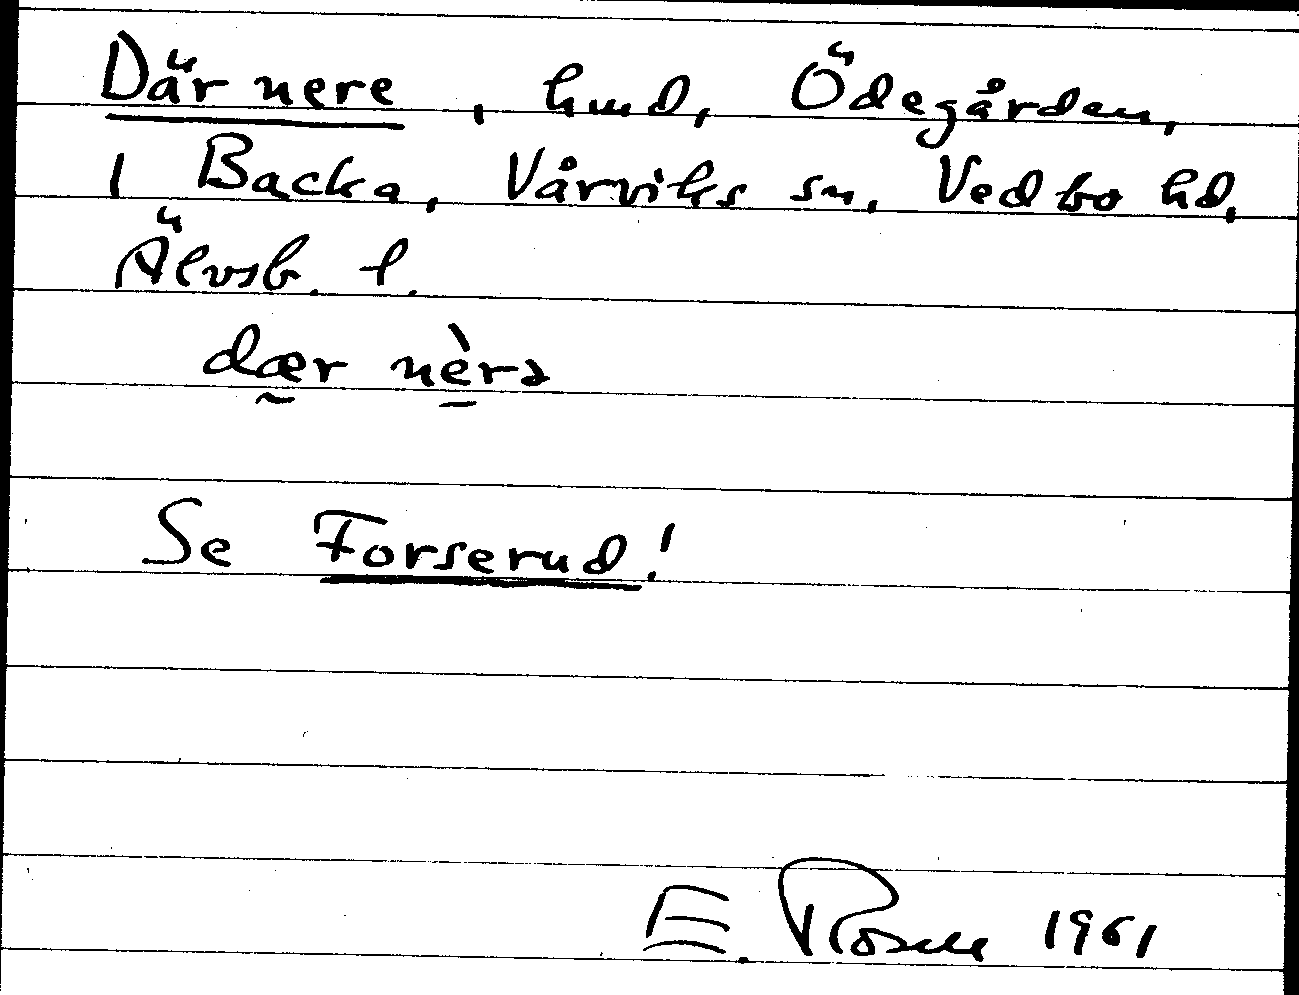 Där nere, hmd, Ödegården,
1 Backa, Vårviks sn, Vedbo hd,
Älvsb. l.
dær nèrə
Se Forserud!
E. Rosell 1961